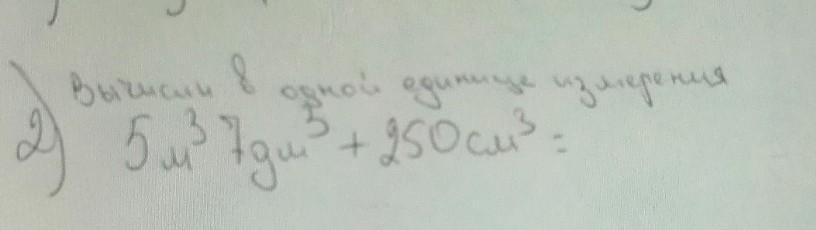 Вычисли в одной единице измерения
2) 5м³ 7дм³ + 250см³ =